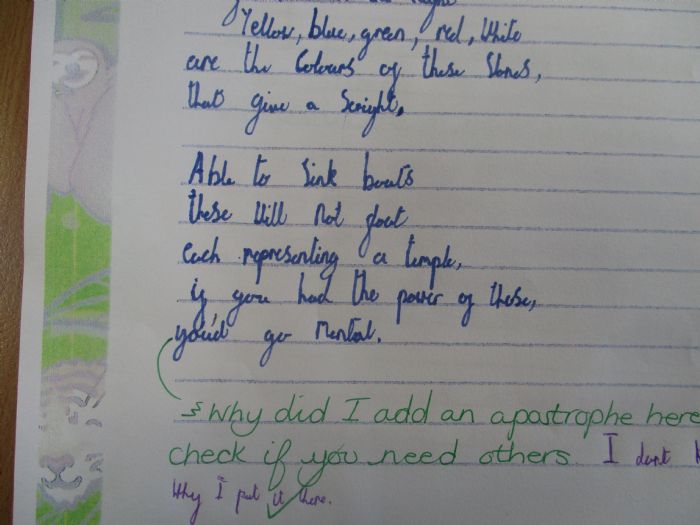 Yellow, blue, green, red, White
are the Colours of these Stones,
that give a
Able to Sink boats
these Will not float
each representing a temple,
if you had the power of these,
you'd go Mental.
Why did I add an apostrophe here
check if you need others. I dont
Why I put it there.